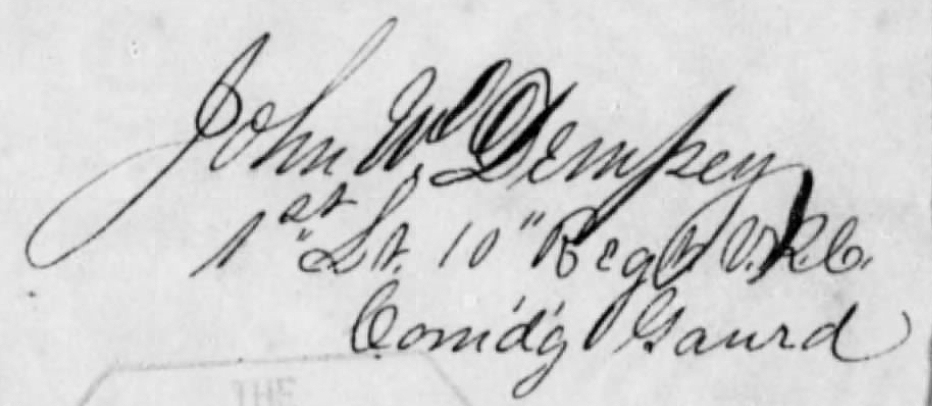 John W. Dempsey
1st Lt. 10" Regt V.R.C.
Com'd'g Gaurd
THE